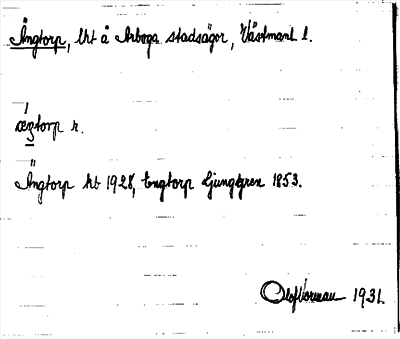 Ängtorp, lht å Arboga stadsägor, Västmanl l.
ængtorp r.
Ängtorp hb 1928, Engtorp Ljunggren 1853.
Olof Norman 1931